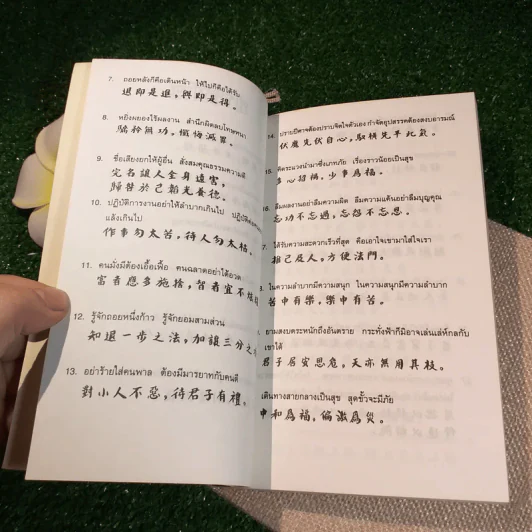 7. ถอยหลังก็คือเดินหน้า ให้ไปก็คือได้รับ
退即是進，與即是得。
8. หยิ่งผยองไร้ผลงาน สำนึกผิดลบโทษทัณฑ์
驕矜無功，懺悔滅罪。
9. ชื่อเสียงยกให้ผู้อื่น สั่งสมคุณธรรมความดี
完名讓人全身遠害，
歸咎於己韜光養德。
10. ปฏิบัติการงานอย่าให้ลำบากเกินไป ปฏิบัติต่อ
แล้งเกินไป
作事勿太苦，待人勿太枯。
11. คนมั่งมีต้องเอื้อเฟื้อ คนฉลาดอย่าโอ้อวด
富者應多施捨，智者宜不炫
12. รู้จักถอยหนึ่งก้าว รู้จักยอมสามส่วน
知退一步之法，加讓三分之
13. อย่าร้ายใส่คนพาล ต้องมีมารยาทกับคนดี
對小人不惡，待君子有禮。
14. ปราบปีศาจต้องปราบจิตใจตัวเอง กำจัดอุปสรรคต้องสงบอารมณ์
伏魔先伏自心，馭橫先平此氣。
15. คิดระแวงนำมาซึ่งเภทภัย เรื่องราวน้อยเป็นสุข
多心招禍，少事為福。
16. ลืมผลงานอย่าลืมความผิด ลืมความแค้นอย่าลืมบุญคุณ
忘功不忘過，忘怨不忘恩。
7 ได้รับความสะดวกเร็วที่สุด คือเอาใจเขามาใส่ใจเรา
推己及人，方便法門。
ในความลำบากมีความสนุก ในความสนุกมีความลำบาก
苦中有樂，樂中有苦。
ยามสงบตระหนักถึงอันตราย กระทั่งฟ้าก็มิอาจเล่นเล่ห์กลกับ
เขาได้
君子居安思危，天亦無用其技。
เดินทางสายกลางเป็นสุข สุดขั้วจะมีภัย
中和為福，偏激為災。